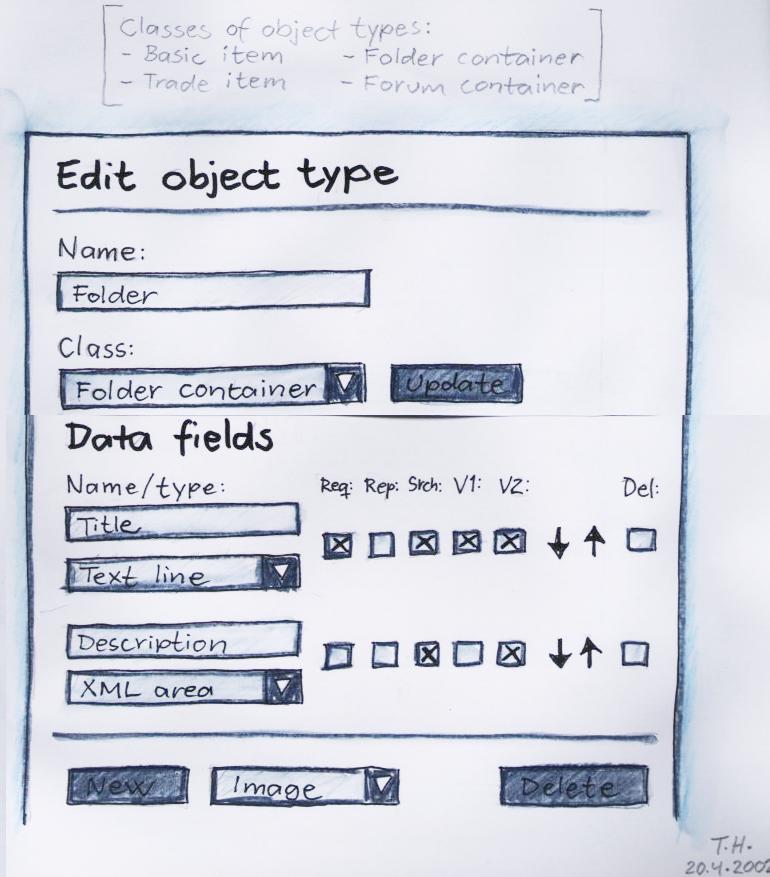 Classes of object types:
- Basic item - Folder container
- Trade item - Forum container
Edit object type
Name:
Folder
Class:
Folder container Update
Data fields
Name/type: Req: Rep: Srch: V1: V2: Del:
Title
Text line
Description
XML area
New Image Delete
T.H.
20.4.2002